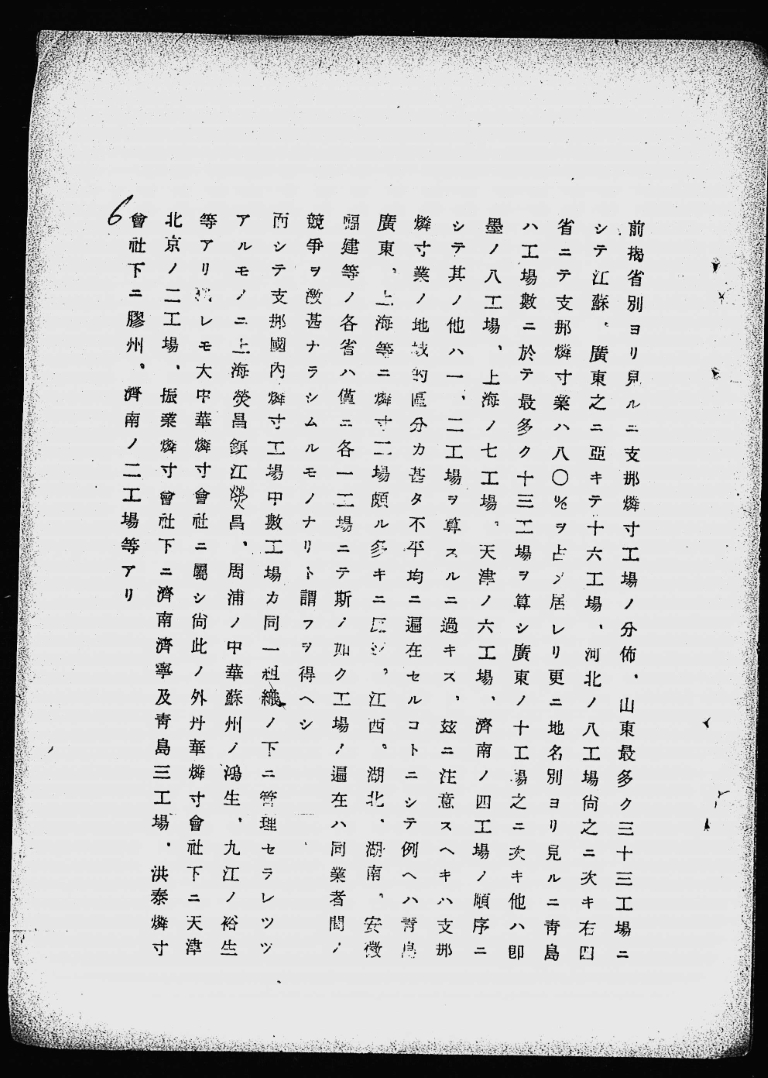 前揭省別ヨリ見ルニ支那燐寸工場ノ分佈、山東最多ク三十三工場ニ
シテ江蘇、廣東之ニ亞キテ十六工場、河北ノ八工場尙之ニ次キ右四
省ニテ支那燐寸業ハ八〇%ヲ占メ居レリ更ニ地名別ヨリ見ルニ靑島
ハ工場數ニ於テ最多ク十三工場ヲ算シ廣東ノ十工場之ニ次キ他ハ卽
墨ノ八工場、上海ノ七工場、天津ノ六工場、濟南ノ四工場ノ順序ニ
シテ其ノ他ハ一、二工場ヲ算スルニ過キス、玆ニ注意スヘキハ支那
燐寸業ノ地域的區分カ甚タ不平均ニ遍在セルコトニシテ例ヘハ靑島
廣東、上海等ニ燐寸工場頗ル多キニ反シ、江西、湖北、湖南、安徽
福建等ノ各省ハ僅ニ各一工場ニテ斯ノ如ク工場ノ遍在ハ同業者間ノ
競爭ヲ激甚ナラシムルモノナリト謂フヲ得ヘシ
而シテ支那國內燐寸工場中數工場カ同一組織ノ下ニ管理セラレツツ
アルモノニ上海熒昌鎭江熒昌、周浦ノ中華蘇州ノ鴻生、九江ノ裕生
等アリ何レモ大中華燐寸會社ニ屬シ尙此ノ外丹華燐寸會社下ニ天津
北京ノ二工場、振業燐寸會社下ニ濟南濟寧及靑島三工場、洪泰燐寸
會社下ニ膠州、濟南ノ二工場等アリ
6